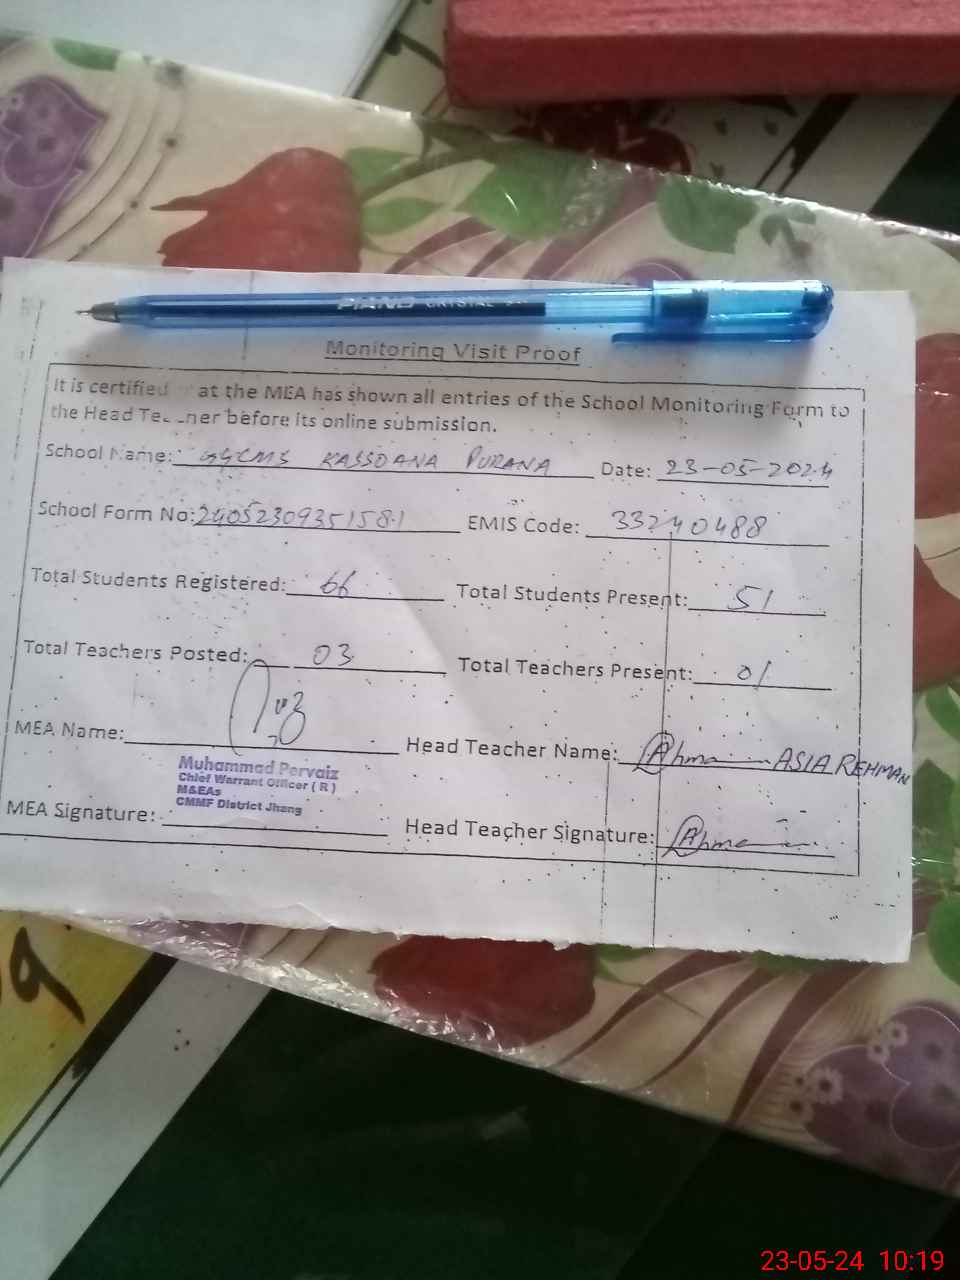 PIANO CRYSTAL
Monitoring Visit Proof
It is certified at the MEA has shown all entries of the School Monitoring Form to
the Head Te ner before its online submission.
School Name: GGCMS KASSOANA PURANA Date: 23-05-2024
School Form No: 2405230935158.1 EMIS Code: 33240488
Total Students Registered: 66 Total Students Present: 51
Total Teachers Posted: 03 Total Teachers Present: 01
MEA Name: Head Teacher Name: ASIA REHMAN
Muhammad Pervaiz
Chief Warrant Officer ( R )
M&EAs
CMMF District Jhang
MEA Signature: Head Teacher Signature:
9
23-05-24 10:19